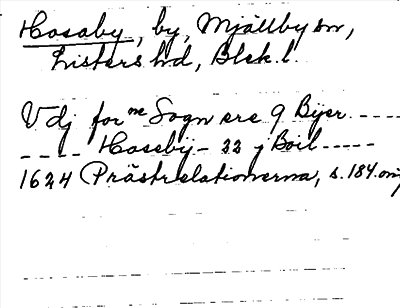 Hosaby, by, Mjällby sn,
Listers hd, Blek. l.
Udj for^ne Sogn ere 9 Byer -----
----- Hoseby - 22 j Boil -----
1624 Prästrelationerna, s. 184